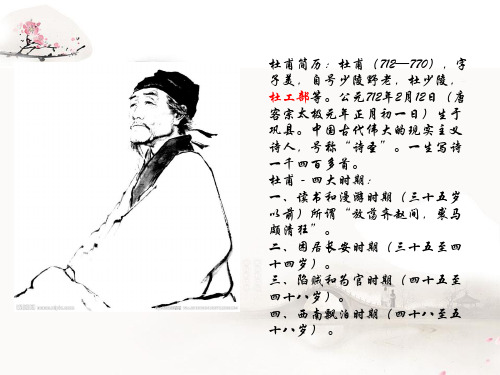 杜甫简历：杜甫（712—770），字
子美，自号少陵野老，杜少陵，
杜工部等。公元712年2月12日（唐
睿宗太极元年正月初一日）生于
巩县。中国古代伟大的现实主义
诗人，号称“诗圣”。一生写诗
一千四百多首。
杜甫－四大时期：
一、读书和漫游时期（三十五岁
以前）所谓“放荡齐赵间，裘马
颇清狂”。
二、困居长安时期（三十五至四
十四岁）。
三、陷贼和为官时期（四十五至
四十八岁）。
四、西南飘泊时期（四十八至五
十八岁）。